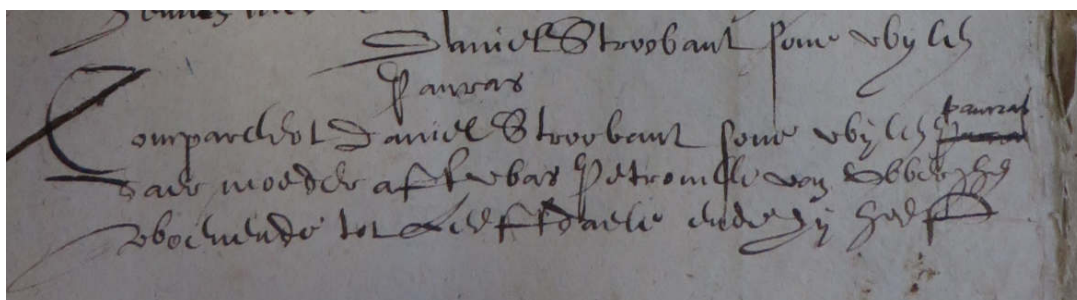 Daniel Stroobant sone wylen
Pauwas
Compareert Daniel Stroobant sone wylen Pauwas
daer moeder aff was Petronelle van Obberghen
woenende tot Leefdaele ende hy heeft